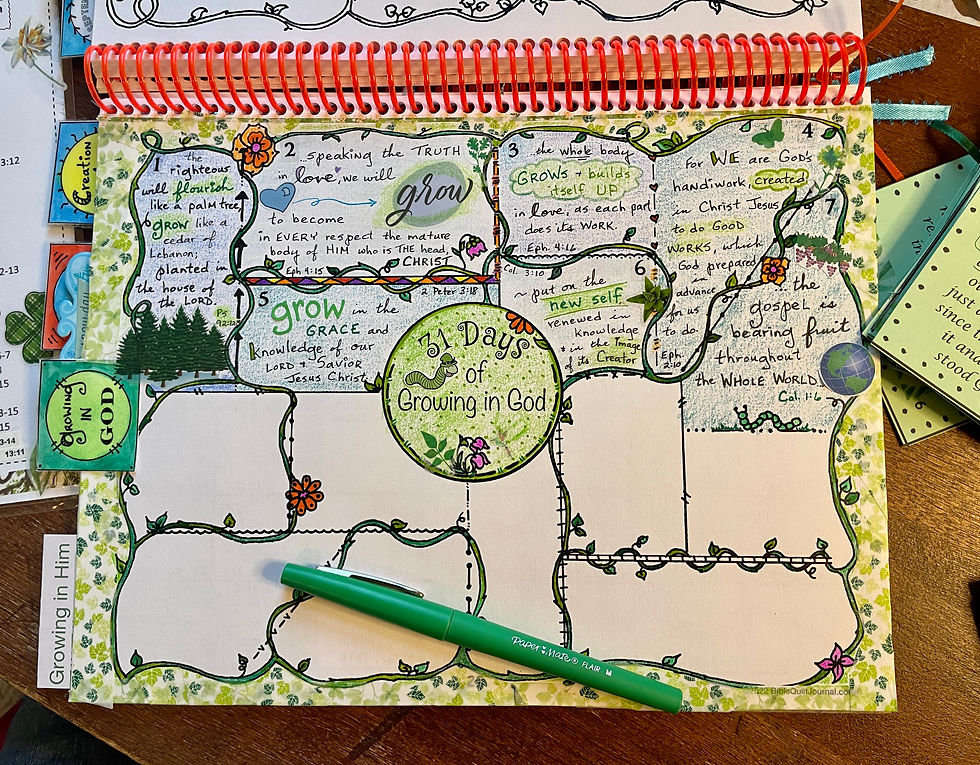 1
the
righteous
will flourish
like a palm tree,
grow like a
cedar of
Lebanon;
planted in
the house of
the LORD.
Ps
92:12
2
...speaking the TRUTH
in love, we will
grow
to become
in EVERY respect the mature
body of HIM who is THE head,
Eph 4:15 CHRIST
3
...the whole body
GROWS + builds
itself UP
in love, as each part
does its WORK.
Eph. 4:16
4
For WE are God's
handiwork, created
in Christ Jesus
to do GOOD
WORKS, which
God prepared
in
advance
for us
to do.
Eph.
2:10
5
2 Peter 3:18
grow in the
GRACE and
knowledge of our
LORD & Savior
Jesus Christ
Col. 3:10
6
~ put on the
new self
renewed in
knowledge
in the Image
of its Creator
7
... the
gospel is
bearing fruit
throughout
the WHOLE WORLD
Col. 1:6
31 Days
of
Growing in God
Creation
Growing
IN
GOD
Growing in Him
Paper Mate FLAIR M
2022 BibleQuiltJournal.com
3:12
2-13
6-7
3
3-15
15
3-14
13:11
in
just
since
it and
stood